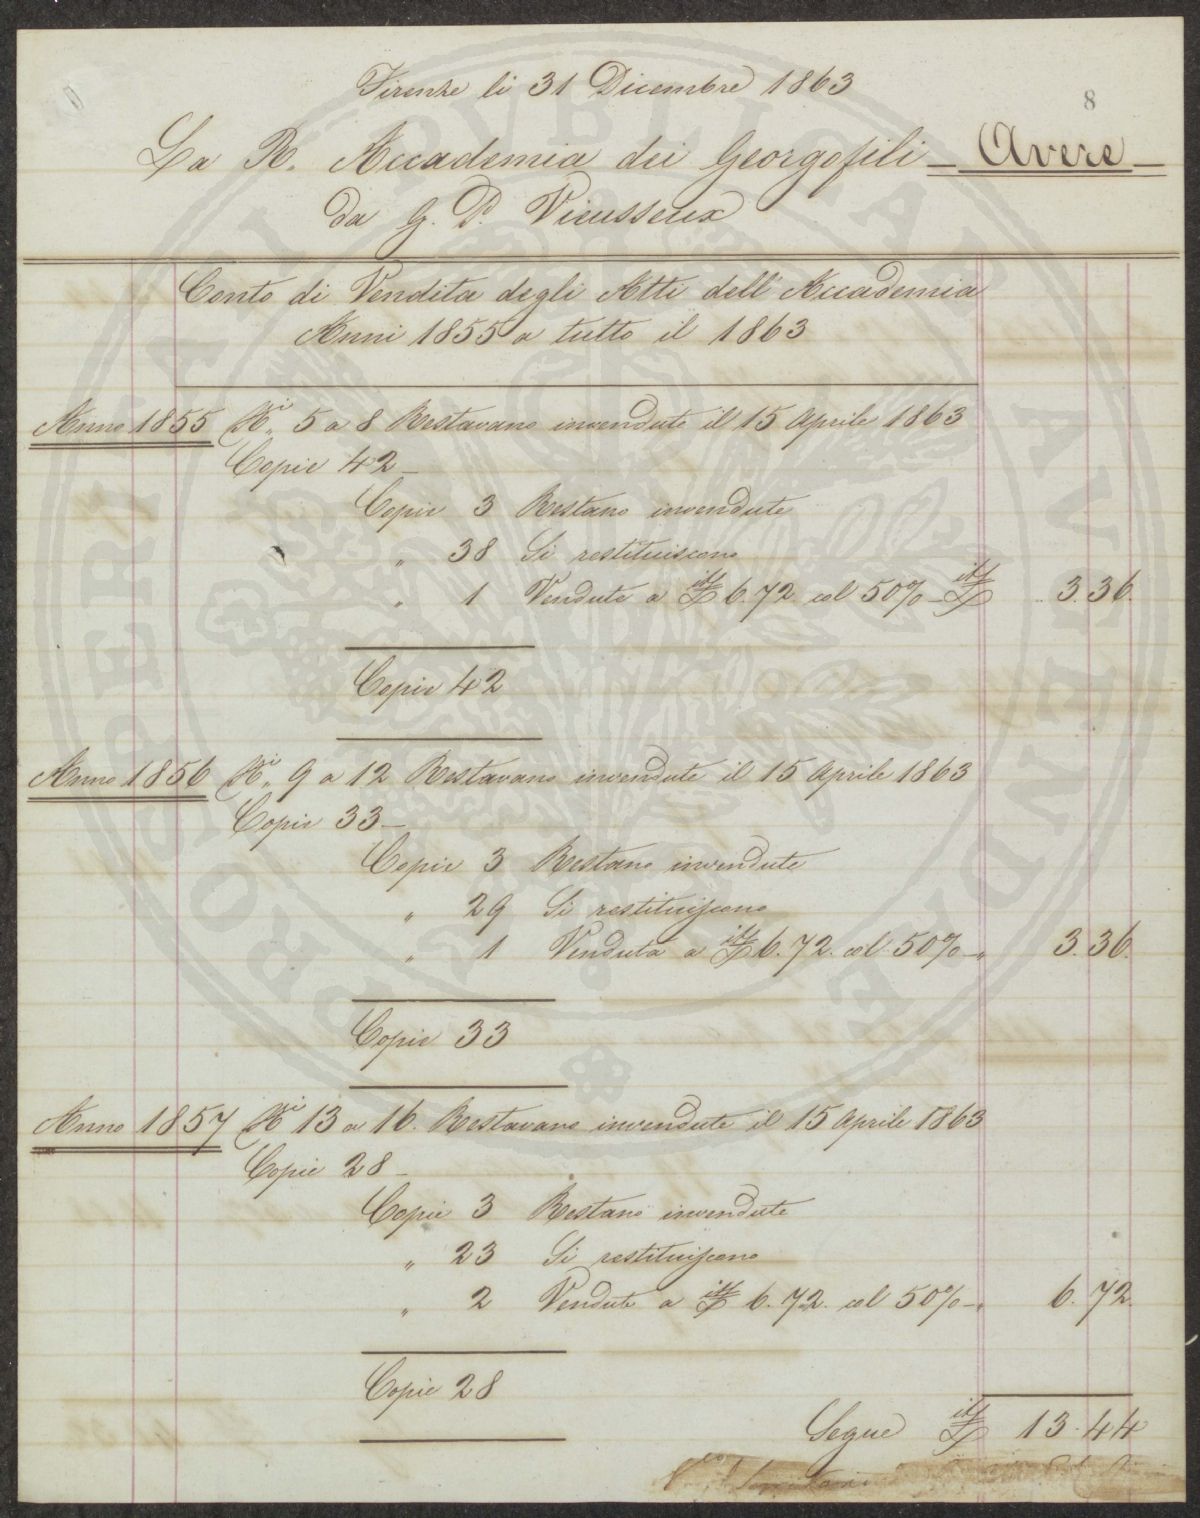 Firenze li 31 Dicembre 1863
8
La R. Accademia dei Georgofili — Avere —
da G. P. Vieusseux
Conto di Vendita degli Atti dell'Accademia
Anni 1855 a tutto il 1863
Anno 1855 Ni. 5 a 8 Restavano invendute il 15 Aprile 1863
Copie 42 —
Copie 3 Restano invendute
" 38 Si restituiscono
" 1 Venduta a itL 6.72 al 50% — itL 3.36.
Copie 42
Anno 1856 Ni. 9 a 12 Restavano invendute il 15 Aprile 1863
Copie 33 —
Copie 3 Restano invendute
" 29 Si restituiscono
" 1 Venduta a itL 6.72. al 50% — " 3.36.
Copie 33
Anno 1857 Ni 13 a 16. Restavano invendute il 15 Aprile 1863
Copie 28 —
Copie 3 Restano invendute
" 23 Si restituiscono
" 2 Vendute a itL 6.72. al 50% — " 6.72.
Copie 28
Segue itL 13.44
PROSPERITATI PUBLICAE AUGENDAE